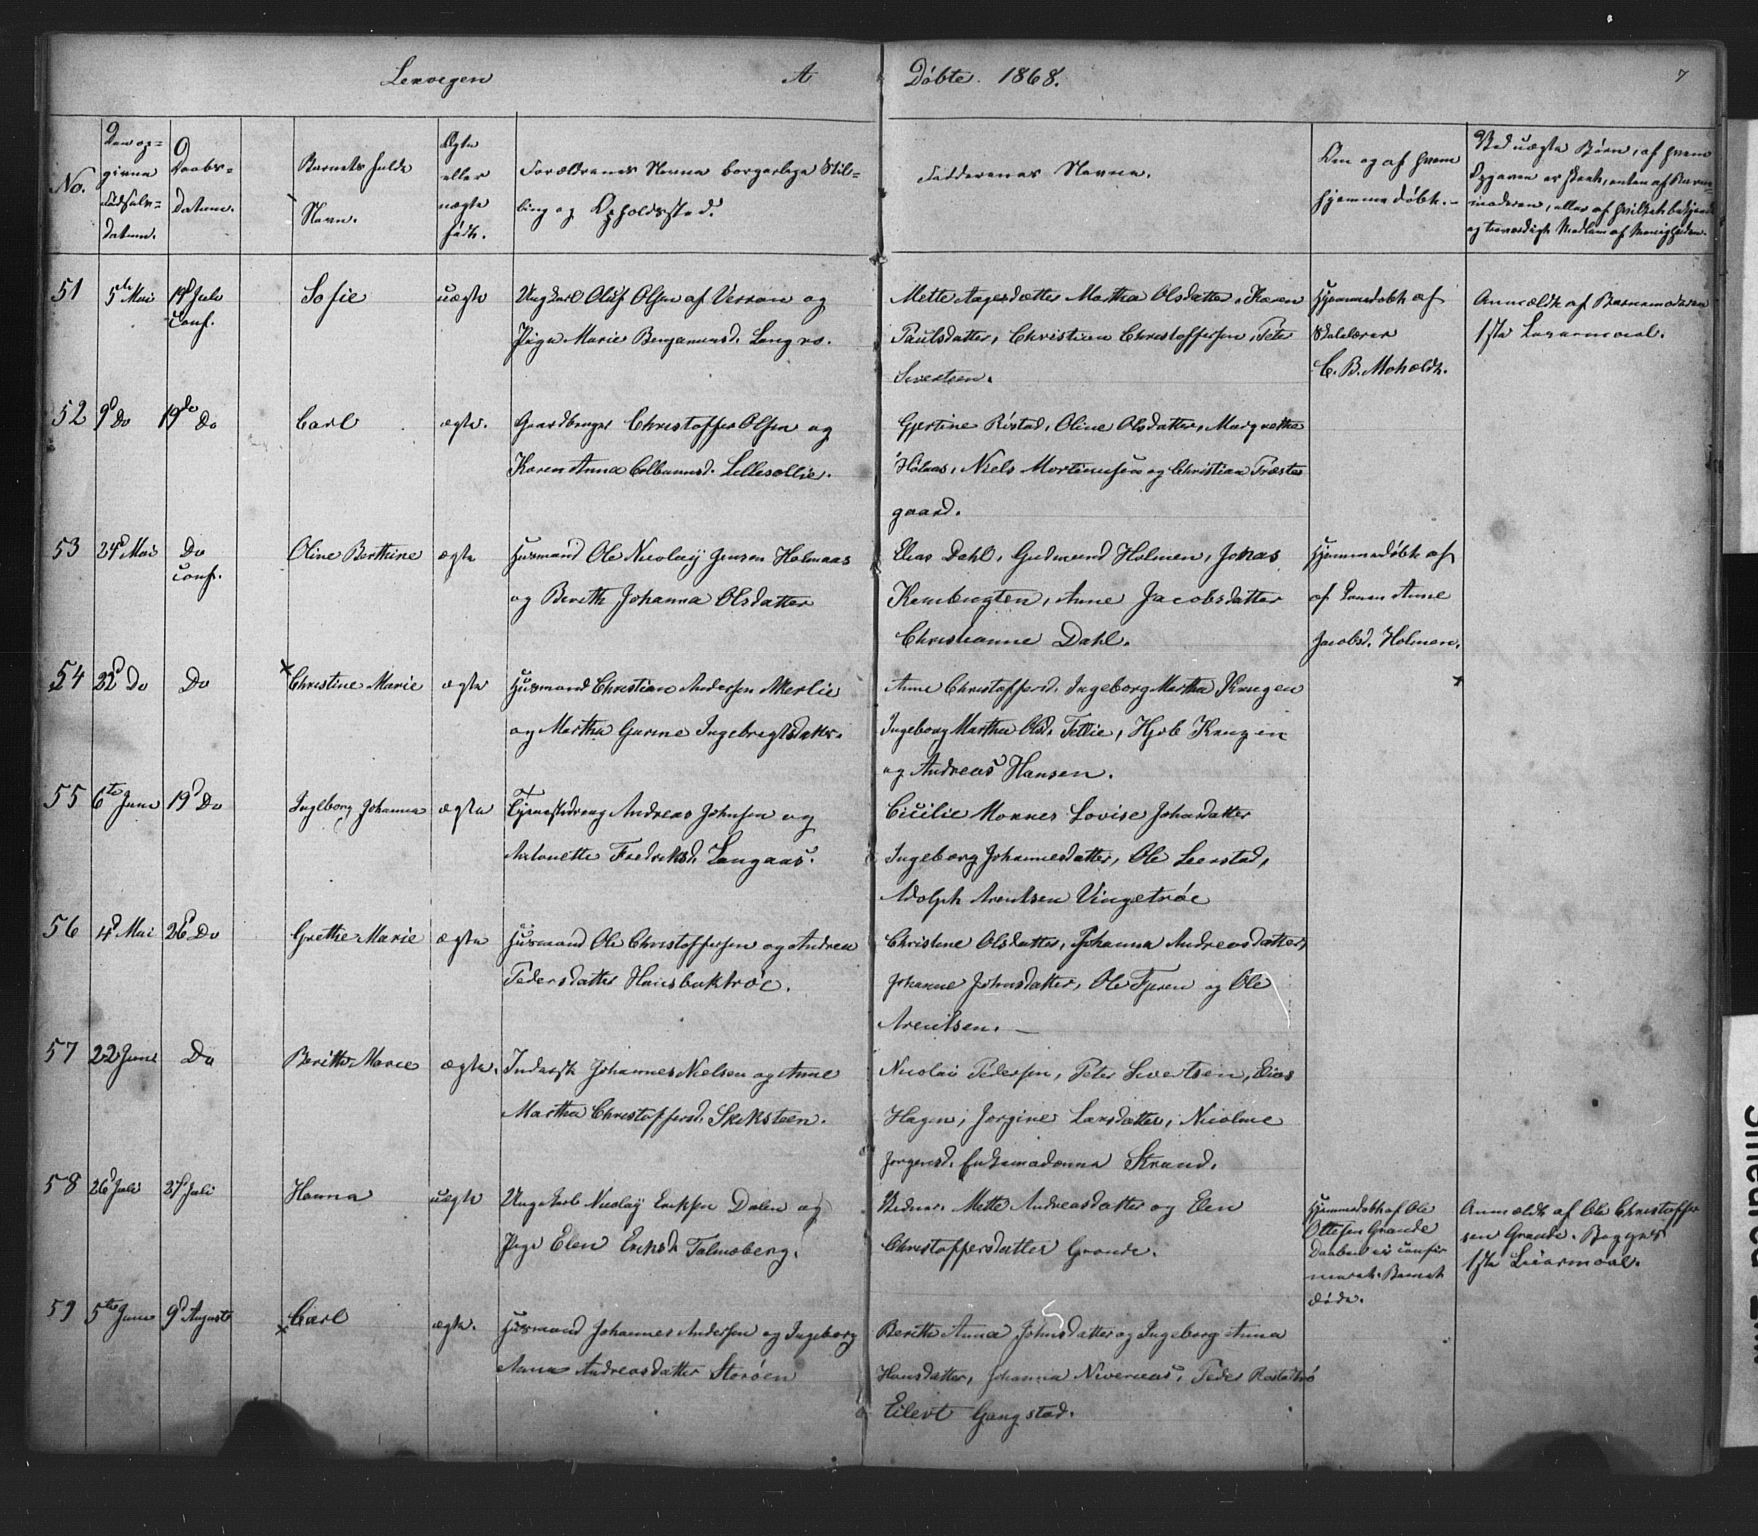 Lexvigen A Døbte. 1868. 7
No.
Den op-
givne
Fødsels-
datum.
Daabs-
Datum.
Barnets fulde
Navn.
Ægte
eller
uægte
født.
Forældrenes Navne borgerlige Stil-
ling og Opholdssted.
Fadderenes Navne.
Om og af hvem
hjemmedøbt.
Ved uægte Børn, af hvem
Opgaven er skeet, enten af Barne-
moderen, eller af hvilket bekjendt
og troværdigt Medlem af Menigheden.
51 5te Mai 19d Juli Conf. Sofie uægte
Ungkarl Oluf Olsen af Verran og
Pige Marie Benjaminsd.
Mette Aagesdatter Martha Olsdatter, Karen
Paulsdatter, Christian Christoffersen, Peter
Sivertsen.
Hjemmedøbt af
Skolelærer
C. B. Moholdt.
Anmældt af Barnemoderen
1ste Leiermaal.
52 9d Do 19de Do Carl ægte.
Gaardbruger Christoffer Olsen og
Karen Anna Colbannsd. Lillesollie.
Gjertine Ristad, Oline Olsdatter, Margrethe
Holaas, Niels Mortinussen og Christian Træste
gaard.
53 24d Mai Do Conf. Oline Berthine ægte
Husmand Ole Nicolaij Jensen Holmaas
og Berith Johanna Olsdatter
Elias Dahl, Gudmund Holmen, Jonas
Kambugten, Anne Jacobsdatter
Christianne Dahl.
Hjemmedøbt af
af Konen Anne
Jacobsd. Holmen.
54 22d Do Do × Christine Marie ægte
Husmand Christian Andersen Merlie
og Martha Gurine Ingebrigtsdatr.
Anne Christoffersd. Ingeborg Martha Krugen
Ingeborg Martha Olsd. Tellie, Hjob Krugen
og Andreas Hansen.
×
55 6te Juni 19d Do Ingeborg Johanna ægte
Tjenestedreng Andreas Johnsen og
Antonette Fredriksd. Langaas.
Cicilie Moxnes Lovise Johasdatter
Ingeborg Johannesdatter, Ole Leerstad,
Adolph Arentsen Vingetrøe
56 4d Mai 26d Do Grethe Marie ægte
Husmand Ole Christoffersen og Andrea
Pedersdatter Hansbaktrøe.
Christine Olsdatter, Johanna Andreasdatter,
Johanne Johnsdatter, Ole Fjeren og Ole
Arentsen.
57 22 Juni Do Berithe Marie ægte.
Inderst Johannes Nielsen og Anne
Martha Christoffersd. Skeksteen.
Nicolai Pedersen, Peter Sivertsen, Elias
Hagen, Jørgine Larsdatter, Nicoline
Jørgensd. Enkemadonna Strand.
58 26d Juli 27d Juli Hanna uægte
Ungkarl Nicolaij Eriksen Dalen og
Pige Elen Eriksd. Talmoberg.
Vidner Mette Andreasdatter og Elen
Christoffersdatter Grande.
Hjemmedøbt af Ole
Ottesen Grande
Daaben ei confir
meret. Barnet
døde.
Anmældt af Ole Christoffer
sen Grande. Begges
1ste Leiermaal.
59 5te Juni 9d August × Carl ægte.
Husmand Johannes Andersen og Ingeborg
Anna Andreasdatter Storøen
Berithe Anna Johnsdatter og Ingeborg Anna
Hansdatter, Johanna Nivernaas, Peder
Eilert Gangstad.